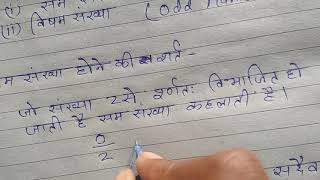 (ii) विषम संख्या (Odd
संख्या होने की शर्त-
जो संख्या 2 से पूर्णतः विभाजित हो
जाती है सम संख्या कहलाती है।
0
2
सदैव